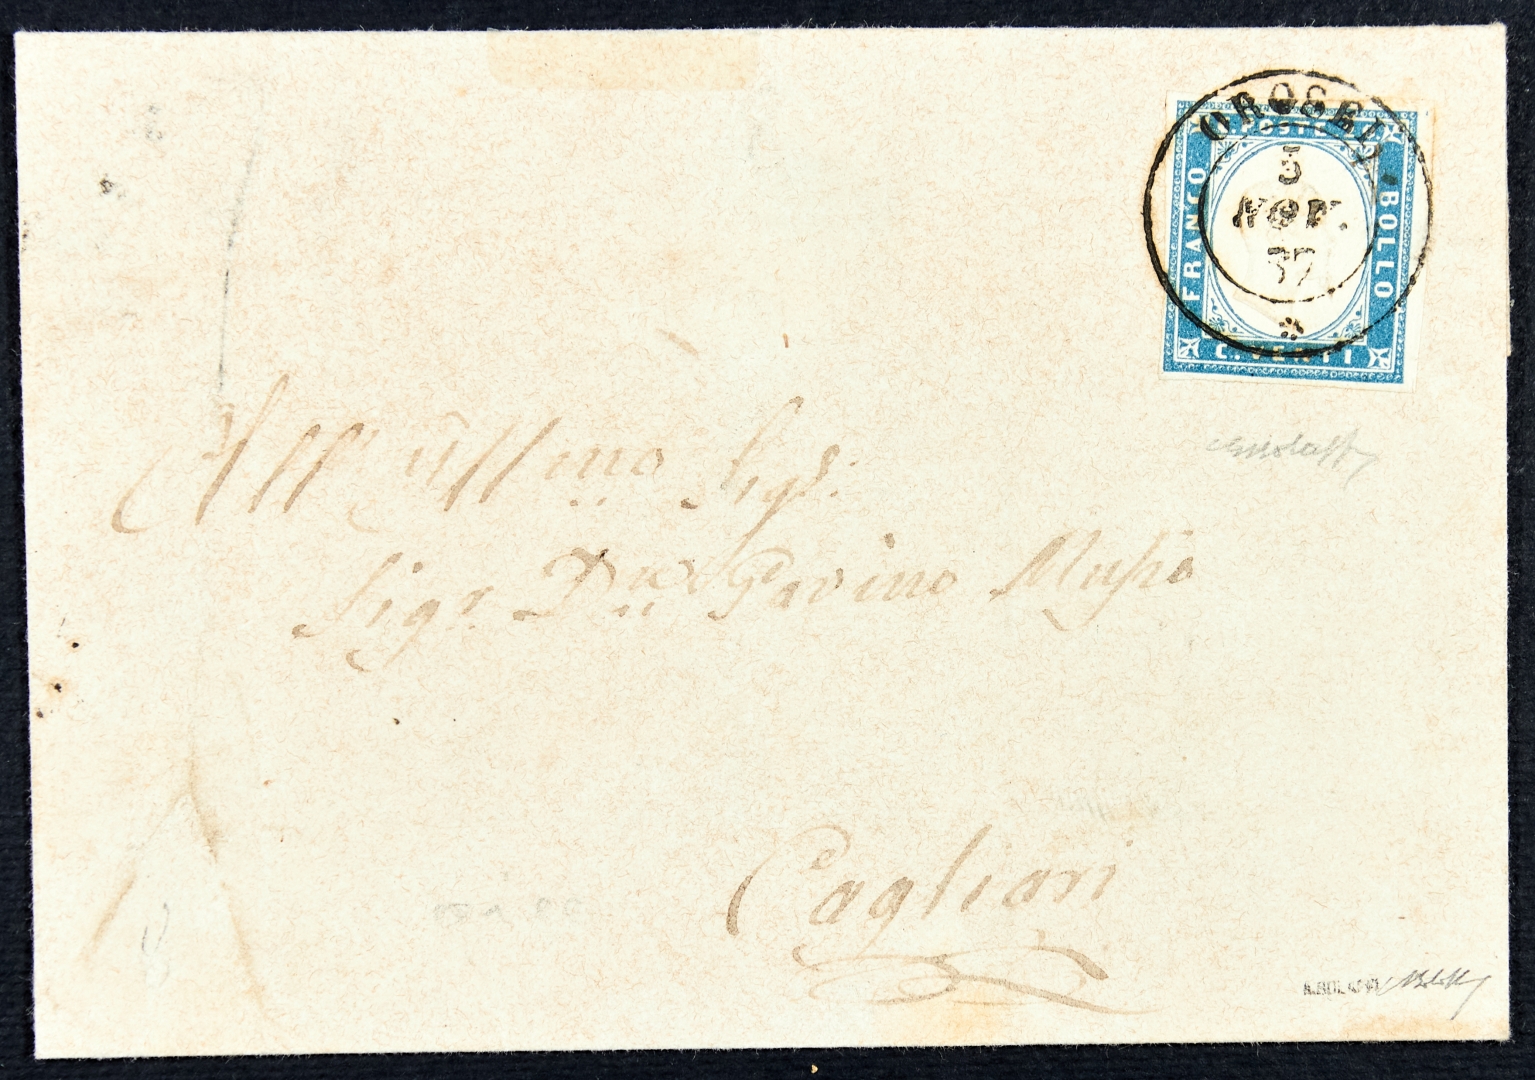 OROSEI
POSTE
5
NOV.
57
FRANCO
BOLLO
C. VENTI
All' Ill.mo Sigr.
Sigr. D.n Gavino Musio
Cagliari
A. BOLAFFI